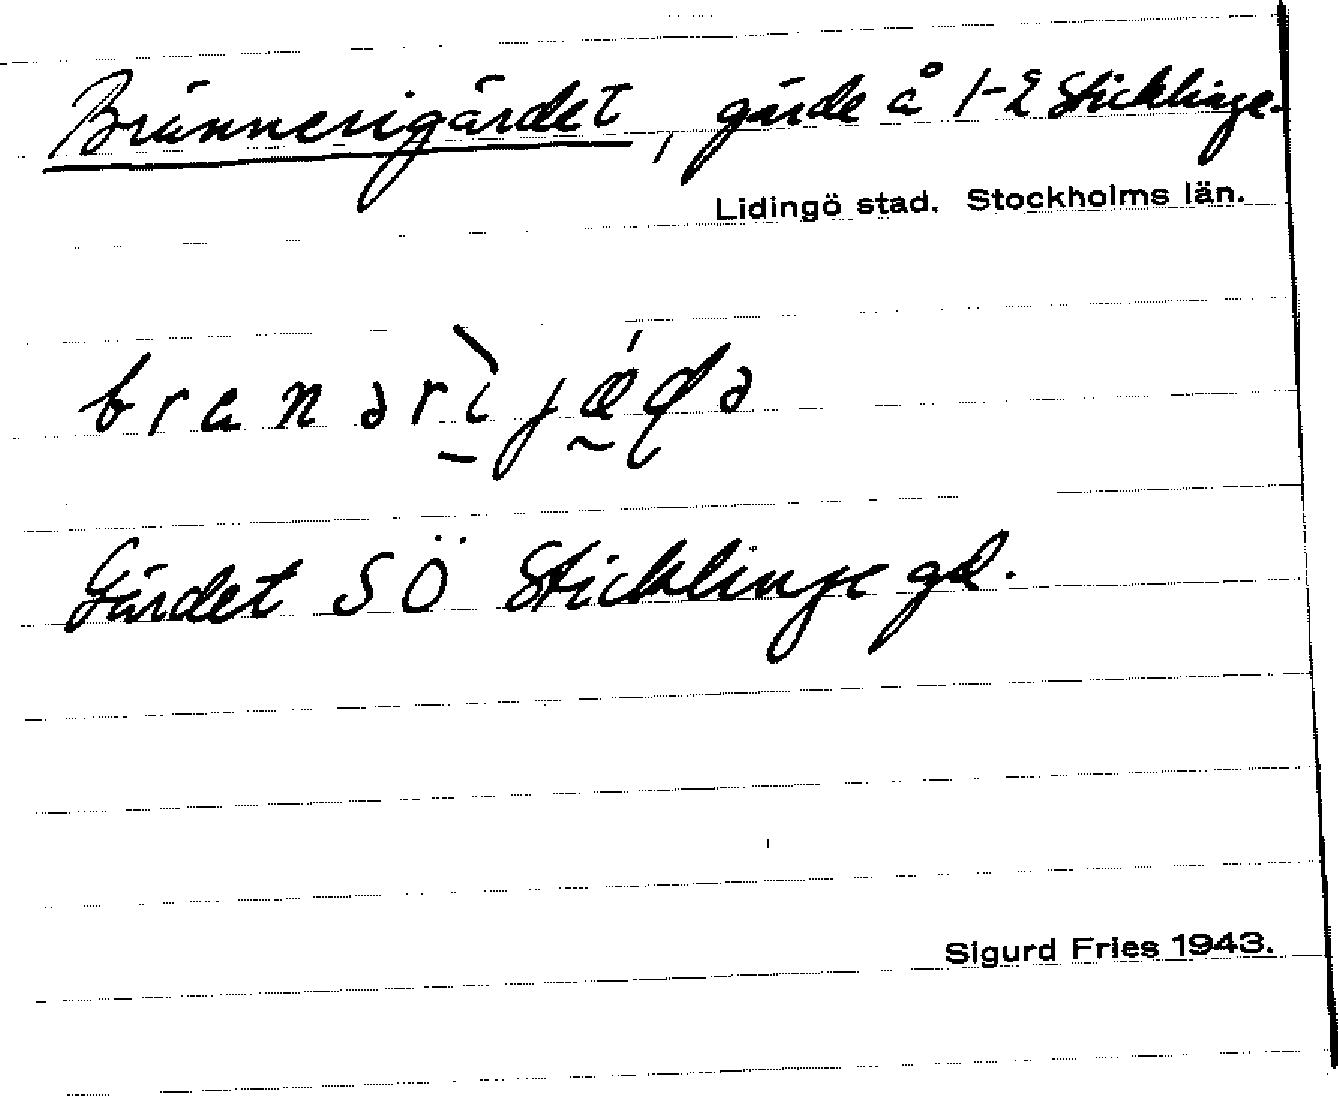 Brännerigärdet, gärde å 1-2 Sticklinge.
Lidingö stad. Stockholms län.
Gärdet SÖ Sticklinge gd.
Sigurd Fries 1943.